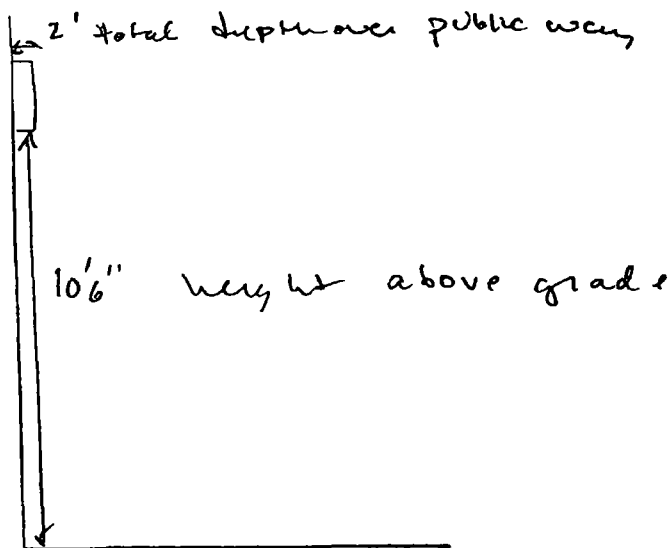 2' total depth over public way
10'6" height above grade